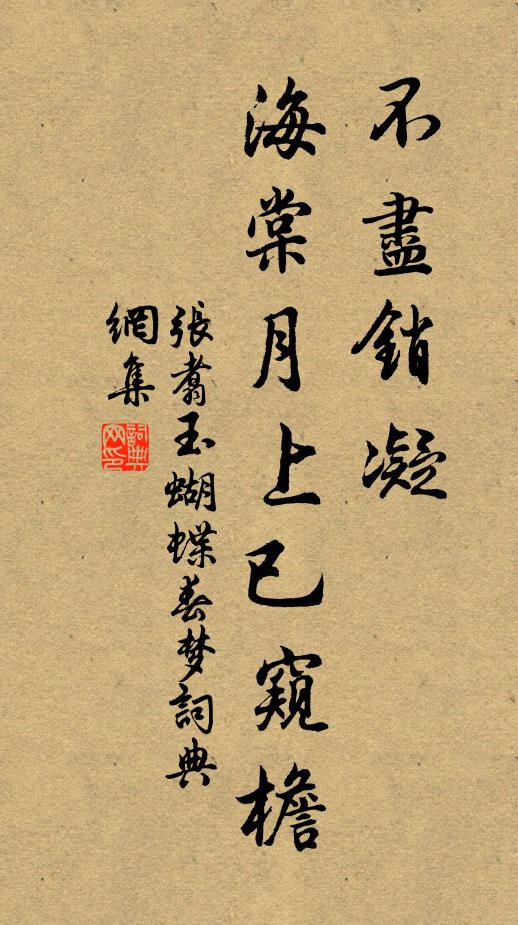 不盡銷凝
海棠月上已窺檐
張翥玉蝴蝶春梦詞典
網集
詞典網印